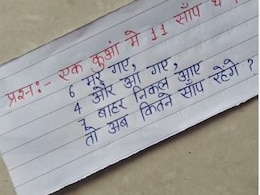 प्रश्न:- एक कुआं मे 11 साँप थे
6 मर गए,
4 और आ गए,
7 बाहर निकल आए
तो अब कितने साँप रहेगे ?